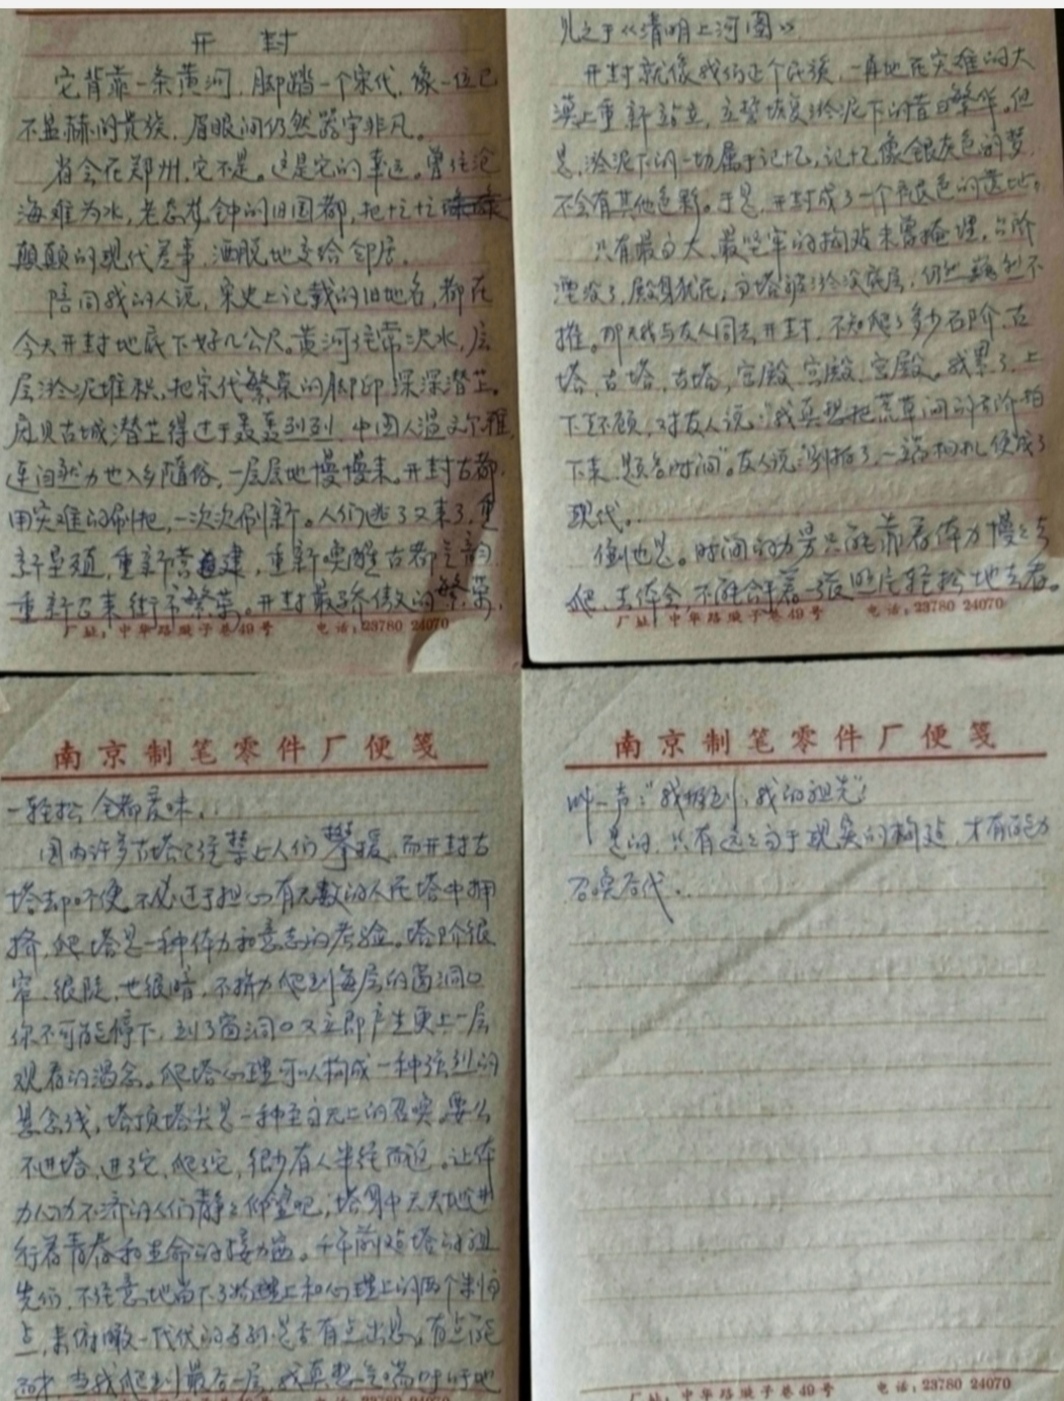 开封
它背靠一条黄河，脚踏一个宋代，像一位已
不显赫的贵族，眉眼间仍然器宇非凡。
省会在郑州，它不是。这是它的幸运。曾经沧
海难为水，老态龙钟的旧国都，把忙忙
颠颠的现代差事，洒脱地交给邻居。
陪同我的人说，宋史上记载的旧地名，都在
今天开封地底下好几公尺。黄河经常决水，层
层淤泥堆积，把宋代繁荣的脚印深深潜埋。
庞贝古城潜埋得过于轰轰烈烈，中国人温文尔雅，
连自然力也入乡随俗，一层层地慢慢来。开封古都，
用灾难的刷把，一次次刷新。人们逃了又来了，重
新垦殖，重新营建，重新唤醒古都气韵，
重新召来街市繁荣。开封最骄傲的繁荣，
厂址：中华路璇子巷49号 电话：23780 24070
见之于《清明上河图》。
开封就像我们这个民族，一再地在灾难的大
漠上重新站立，立誓恢复淤泥下的昔日繁华。但
是，淤泥下的一切属于记忆，记忆像银灰色的梦，
不会有其他色彩。于是，开封成了一个褪色的遗址。
只有最高大、最坚牢的构造未曾掩埋。台阶
湮没了，殿身犹在，高塔被淤没底层，仍然巍然不
摧。那天我与友人同去开封，不知爬了多少石阶，古
塔，古塔，古塔，宫殿，宫殿，宫殿。我累了，上
下环顾，对友人说：“我真想把荒草间的石阶拍
下来，题名‘时间’”。友人说：“别拍了，一离相机便成了
现代。”
倒也是。时间的力量只能靠着体力慢慢去
爬，去体会，不能合着一张照片轻松地去看。
厂址：中华路璇子巷49号 电话：23780 24070
南京制笔零件厂便笺
一轻松，全都走味。
国内许多古塔已经禁止人们攀援，而开封古
塔却不便。不必过于担心有无数的人在塔中拥
挤，爬塔是一种体力和意志的考验。塔阶很
窄，很陡，也很暗，不拼力爬到每层的窗洞口
你不可能停下，到了窗洞口又立即产生更上一层
观看的渴念。爬塔心理可以构成一种强烈的
悬念线，塔顶塔尖是一种至高无上的召唤。要么
不进塔，进了它，爬了它，很少有人半途而返。让体
力心力不济的人们静静仰望吧，塔身中天天地进
行着青春和生命的接力赛。千年前造塔的祖
先们，不经意地留下了物理上和心理上的两个制高
点，来俯瞰一代代的子孙是否有点出息，有点能
耐。当我爬到最后一层，我真想气喘吁吁地
南京制笔零件厂便笺
叫一声：“我报到，我的祖先！”
是的，只有远远高于现实的构造，才有能力
召唤后代。
厂址：中华路璇子巷49号 电话：23780 24070